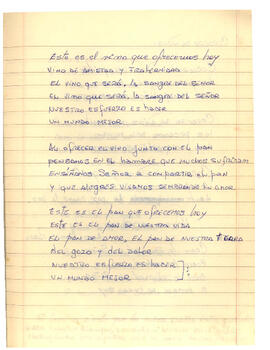 Este es el vino que ofrecemos hoy
Vino de amistad y fraternidad
El vino que será, la sangre del señor
El vino que será, la sangre del señor
Nuestro esfuerzo es hacer
un mundo mejor
Al ofrecer el vino junto con el pan
pensamos en el hambre que muchos sufrirán
enséñanos Señor a compartir el pan
y que alegres vivamos sembrando tu amor
Este es el pan que ofrecemos hoy
Este es el pan de nuestra vida
El pan de amor, el pan de nuestra tierra
del gozo y del dolor
Nuestro esfuerzo es hacer
un mundo mejor